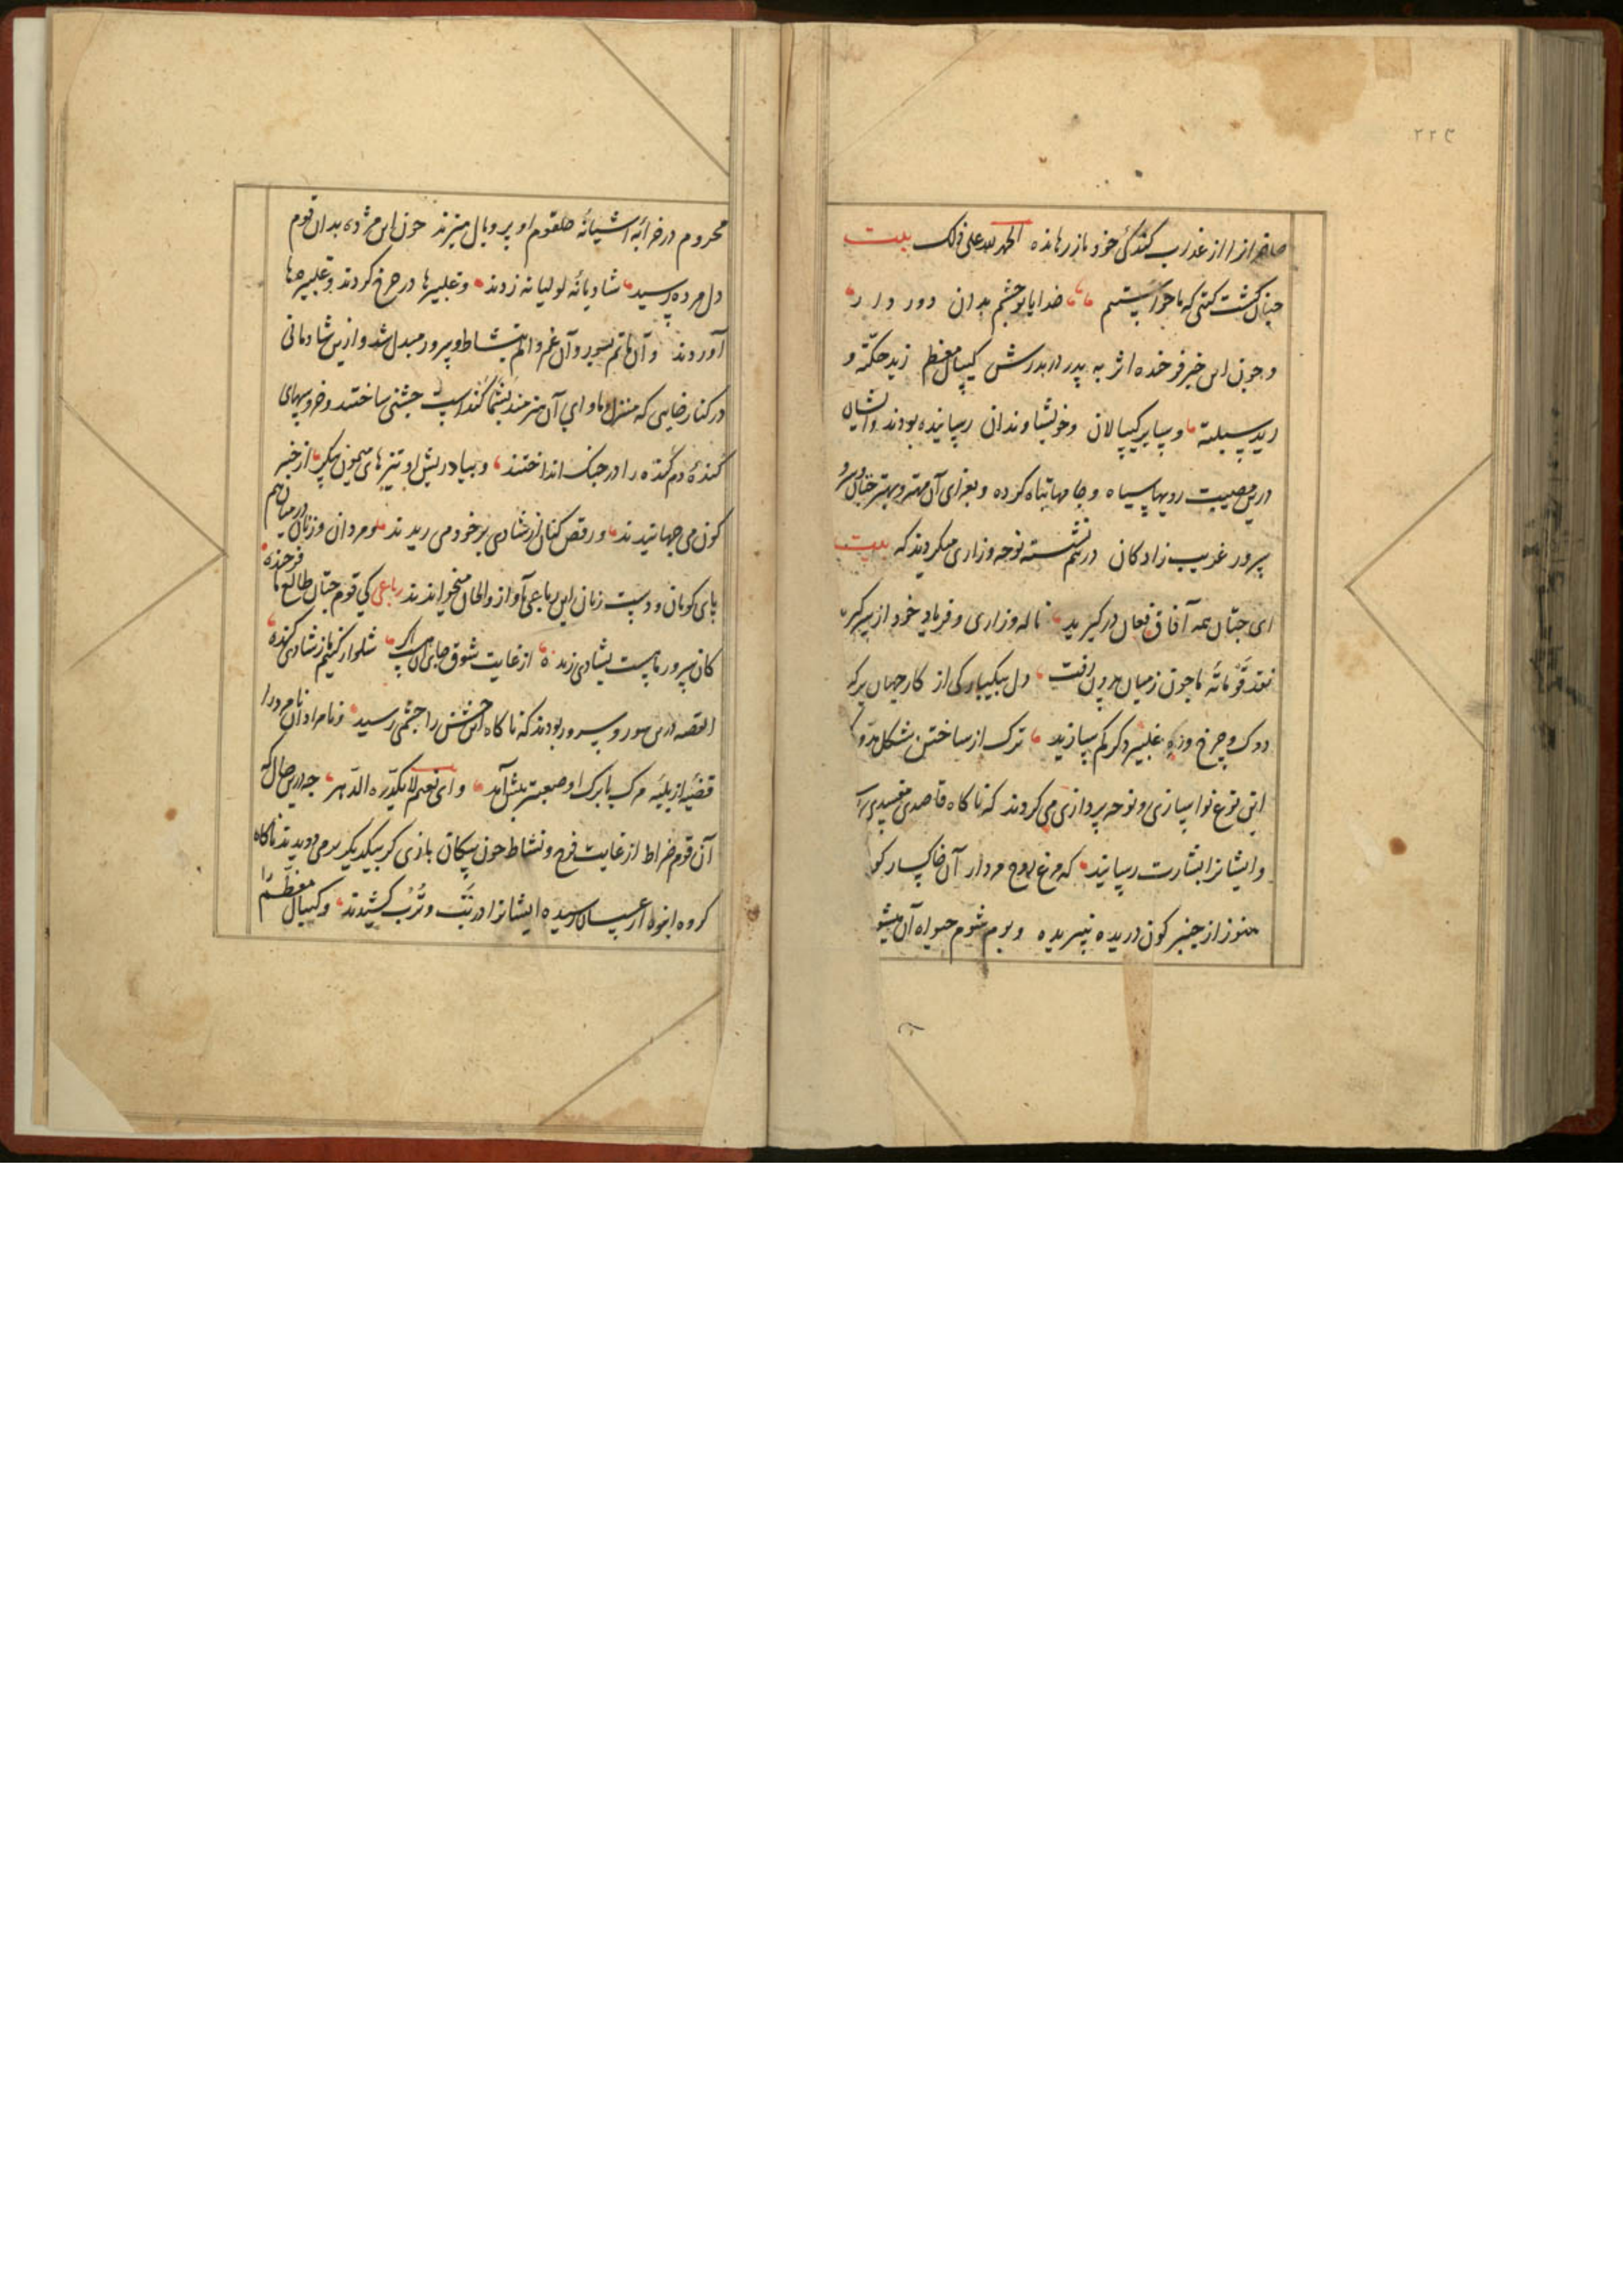 ۲۲۳
حاضرانرا از عذاب کندکئ خود باز رهانده الحمد لله علی ذلک بیت
چنان کشت کیتی که ما خواستیم خدایا تو چشم بدان دور دار
و چون این خبر فرخنده اثر به پدر در بدرش کیپال معظم زید حکّته و
رید سبلته و سایر کیپالان و خویشاوندان رسانیده بودند و ایشان
درین مصیبت رویها سیاه و جامها تباه کرده و بعزای آن مهتر و بهتر
پرور غریب زادکان در هم نشسته نوحه و زاری میکردند که بیت
ای جتان همه آفاق فغان درکیرید ناله و زاری و فریاد خود از سر کیر
نقد ما چون زمیان بیرون رفت دل بیکبارکی از کار جهان برکیر
دوک و چرخ و غلبیر و کم سازید ترک از ساختن مشکل
این نوع نوا سازی و نوحه پردازی می کردند که ناکاه قاصدی
و ایشانرا بشارت رسانید که مرغ روح مردار آن خاکسار
هنوز از چنبر کون دریده نپریده و بوم شوم آن
محروم در خرابه آشیانهٔ حلقوم او پر و بال میزند چون این مژده بدان قوم
دل مرده رسید شادیانهٔ لولیانه زدند و غلبیرها در چرخ کردند و غلبیرها
آوردند و آن ماتم بسور و آن غم و الم بنشاط و سرور مبدل شد و ازین شادمانی
در کنار که منزل و ماوای آن هنرمند است جشنی ساختند و خروسهای
کندهٔ دم کنده را در جنک انداختند و بیاد ریش او بزهای میمون پیکر از چنبر
کون می جهانیدند و رقص کنان از شادی بر خود می ریدند و مردان و زنان در میان هم
پای کوبان و دست زنان این رباعی بآواز و الحان میخواندند رباعی کی قوم جتان طالع ما فرخنده
کان سرور ماست بشادی زنده از غایت شوق جای آن است شلوار کنیم از شادی کنده
القصه درین سور و سرور بودند که ناکاه این جشن را چشمی رسید و نامرادان نامرد را
قضیهٔ از بلیّه مرک بابرک او صعبتر پیش آمد و ای نعیم لا یکدّره الدّهر چه درین حال که
آن قوم ضراط از غایت فرح و نشاط چون سکان بازی کر بیکدیکر بر می دویدند ناکاه
کروه انبوه از عسسان رسیده ایشانرا در کشیدند و کیپال معظّم را